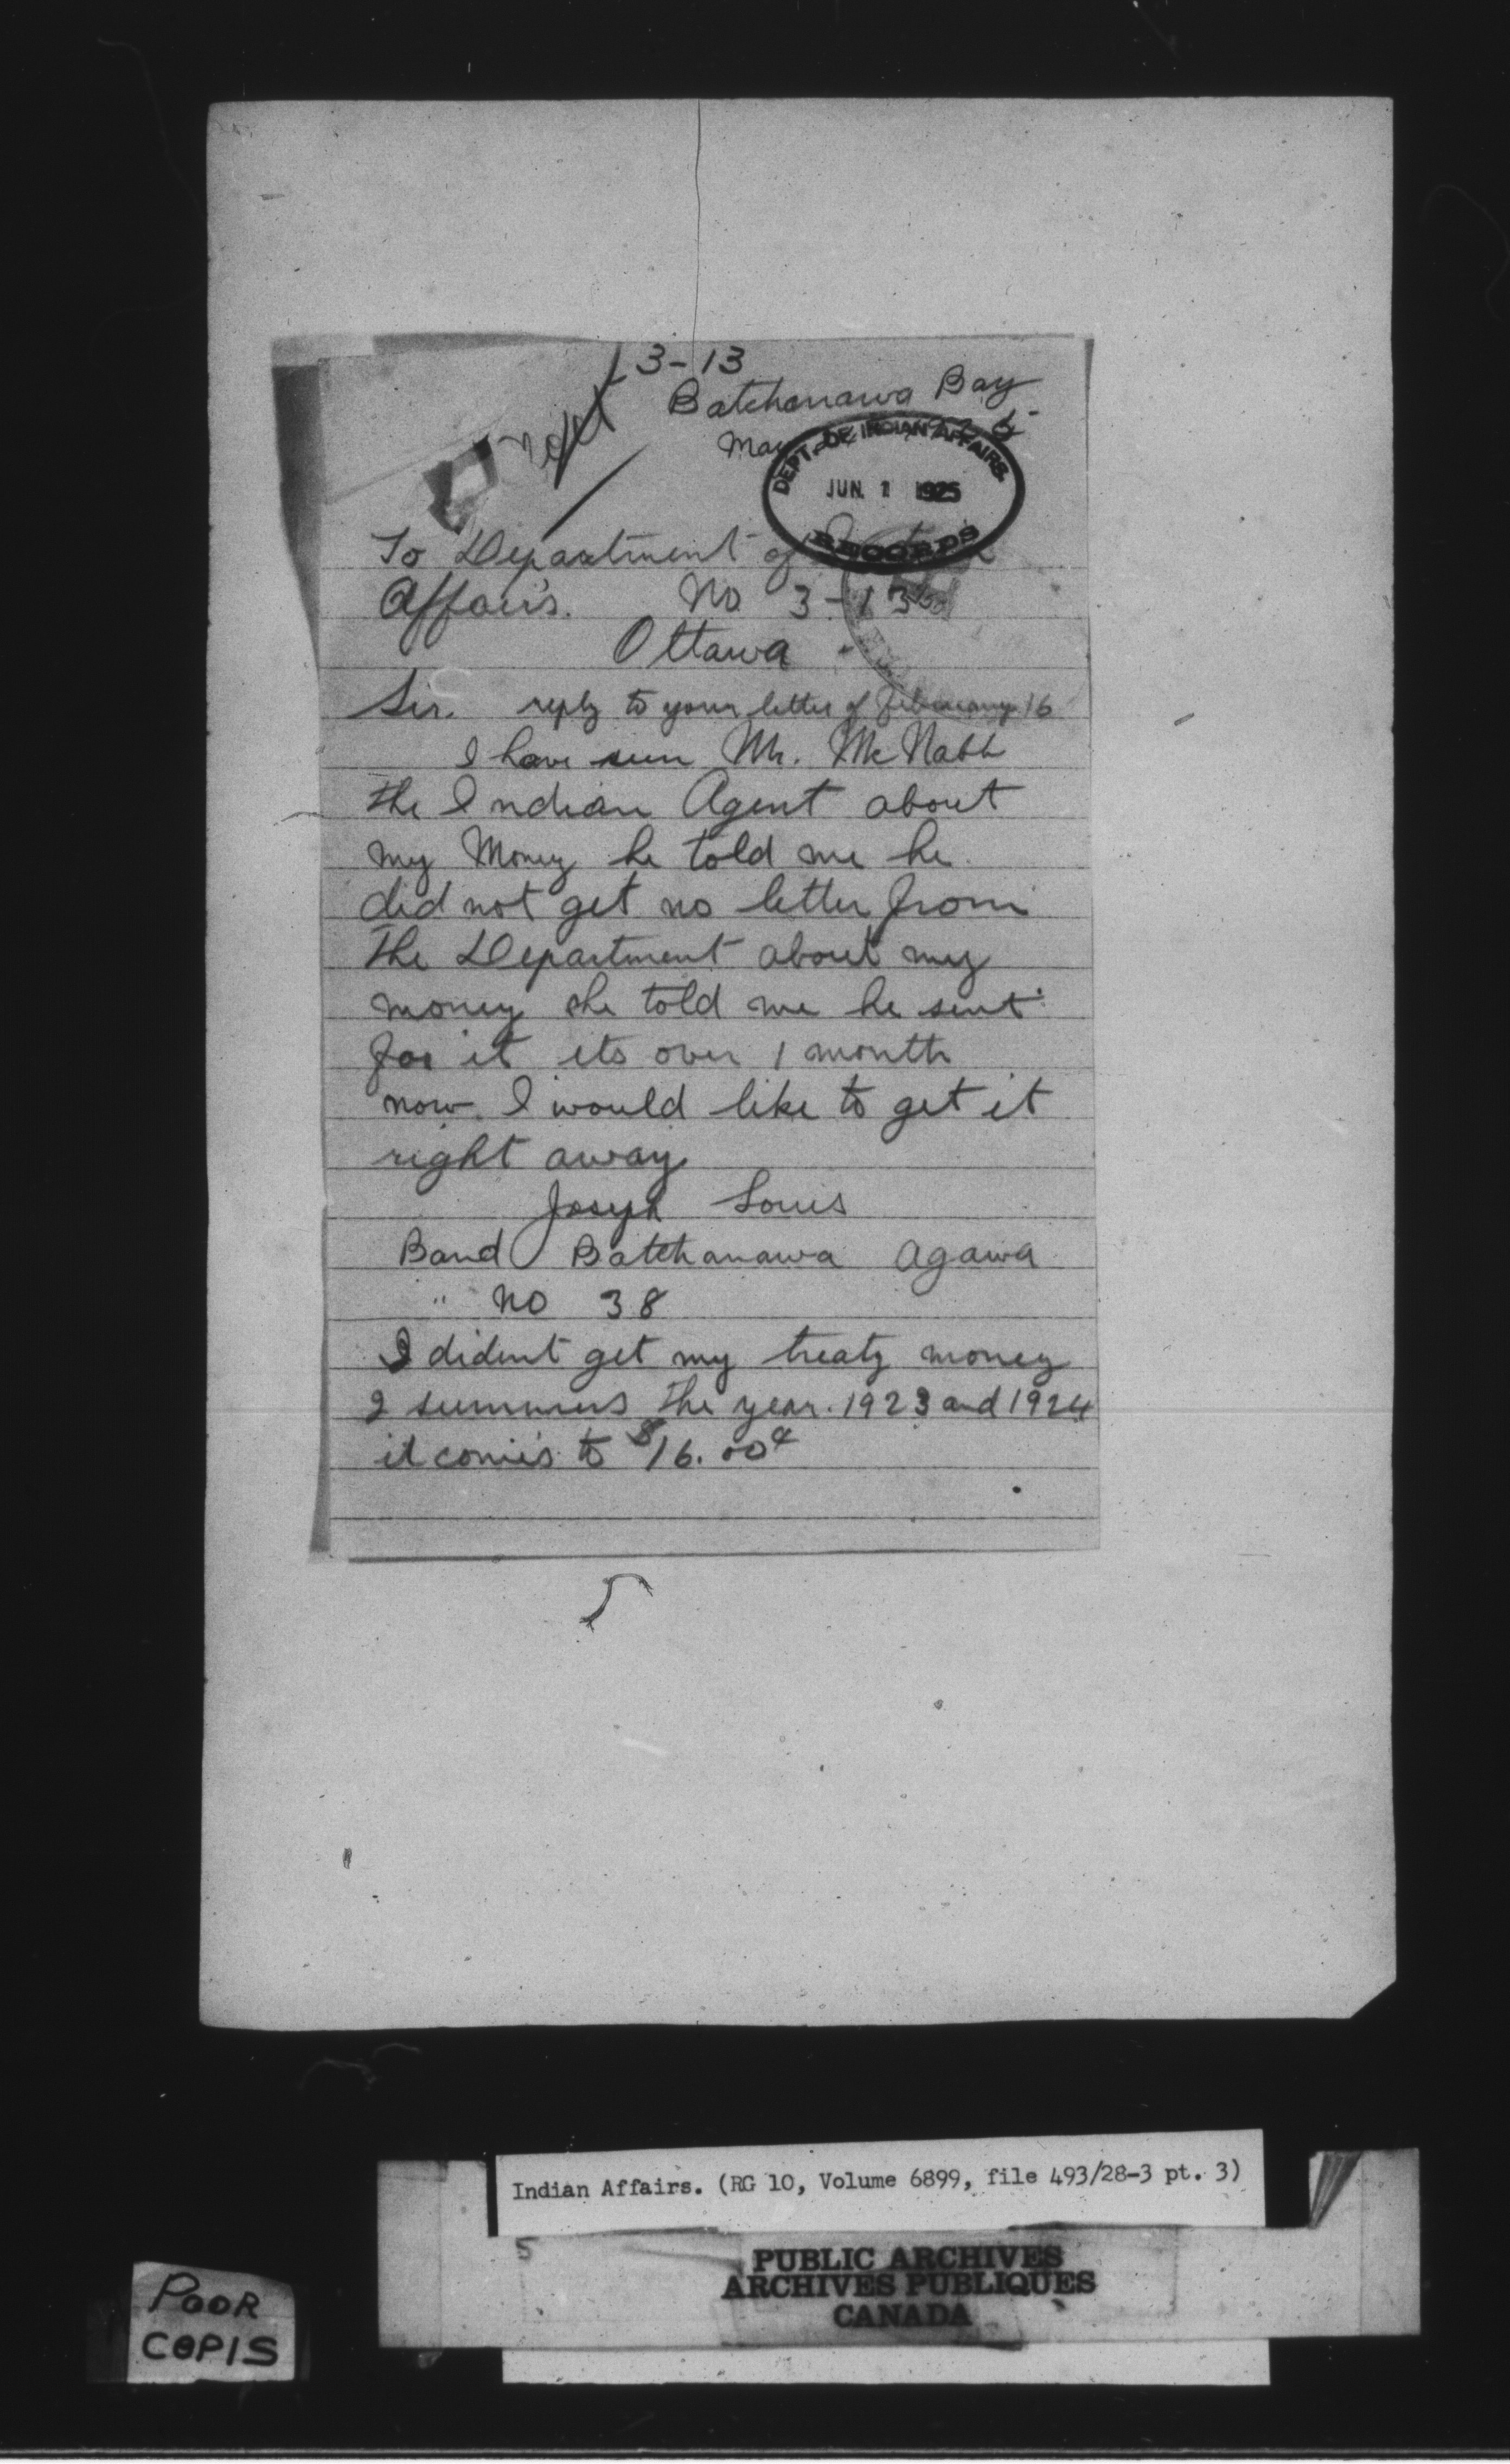 3-13
Batchanawa Bay
May
DEPT. OF INDIAN AFFAIRS.
JUN. 1 1925
RECORDS
To Department of
Affairs. No 3-13
Ottawa
Sir. reply to your letter of february 16
I have seen Mr. McNabb
the Indian Agent about
my Money he told me he
did not get no letter from
the Department about my
money she told me he sent
for it its over 1 month
now. I would like to get it
right away
Joseph Louis
Band Batchanawa Agawa
" No 38
I dident get my treaty money
2 summers the year. 1923 and 1924
it comes to $16.00¢
5
Indian Affairs. (RG 10, Volume 6899, file 493/28-3 pt. 3)
5
PUBLIC ARCHIVES
ARCHIVES PUBLIQUES
CANADA
POOR
COPIS